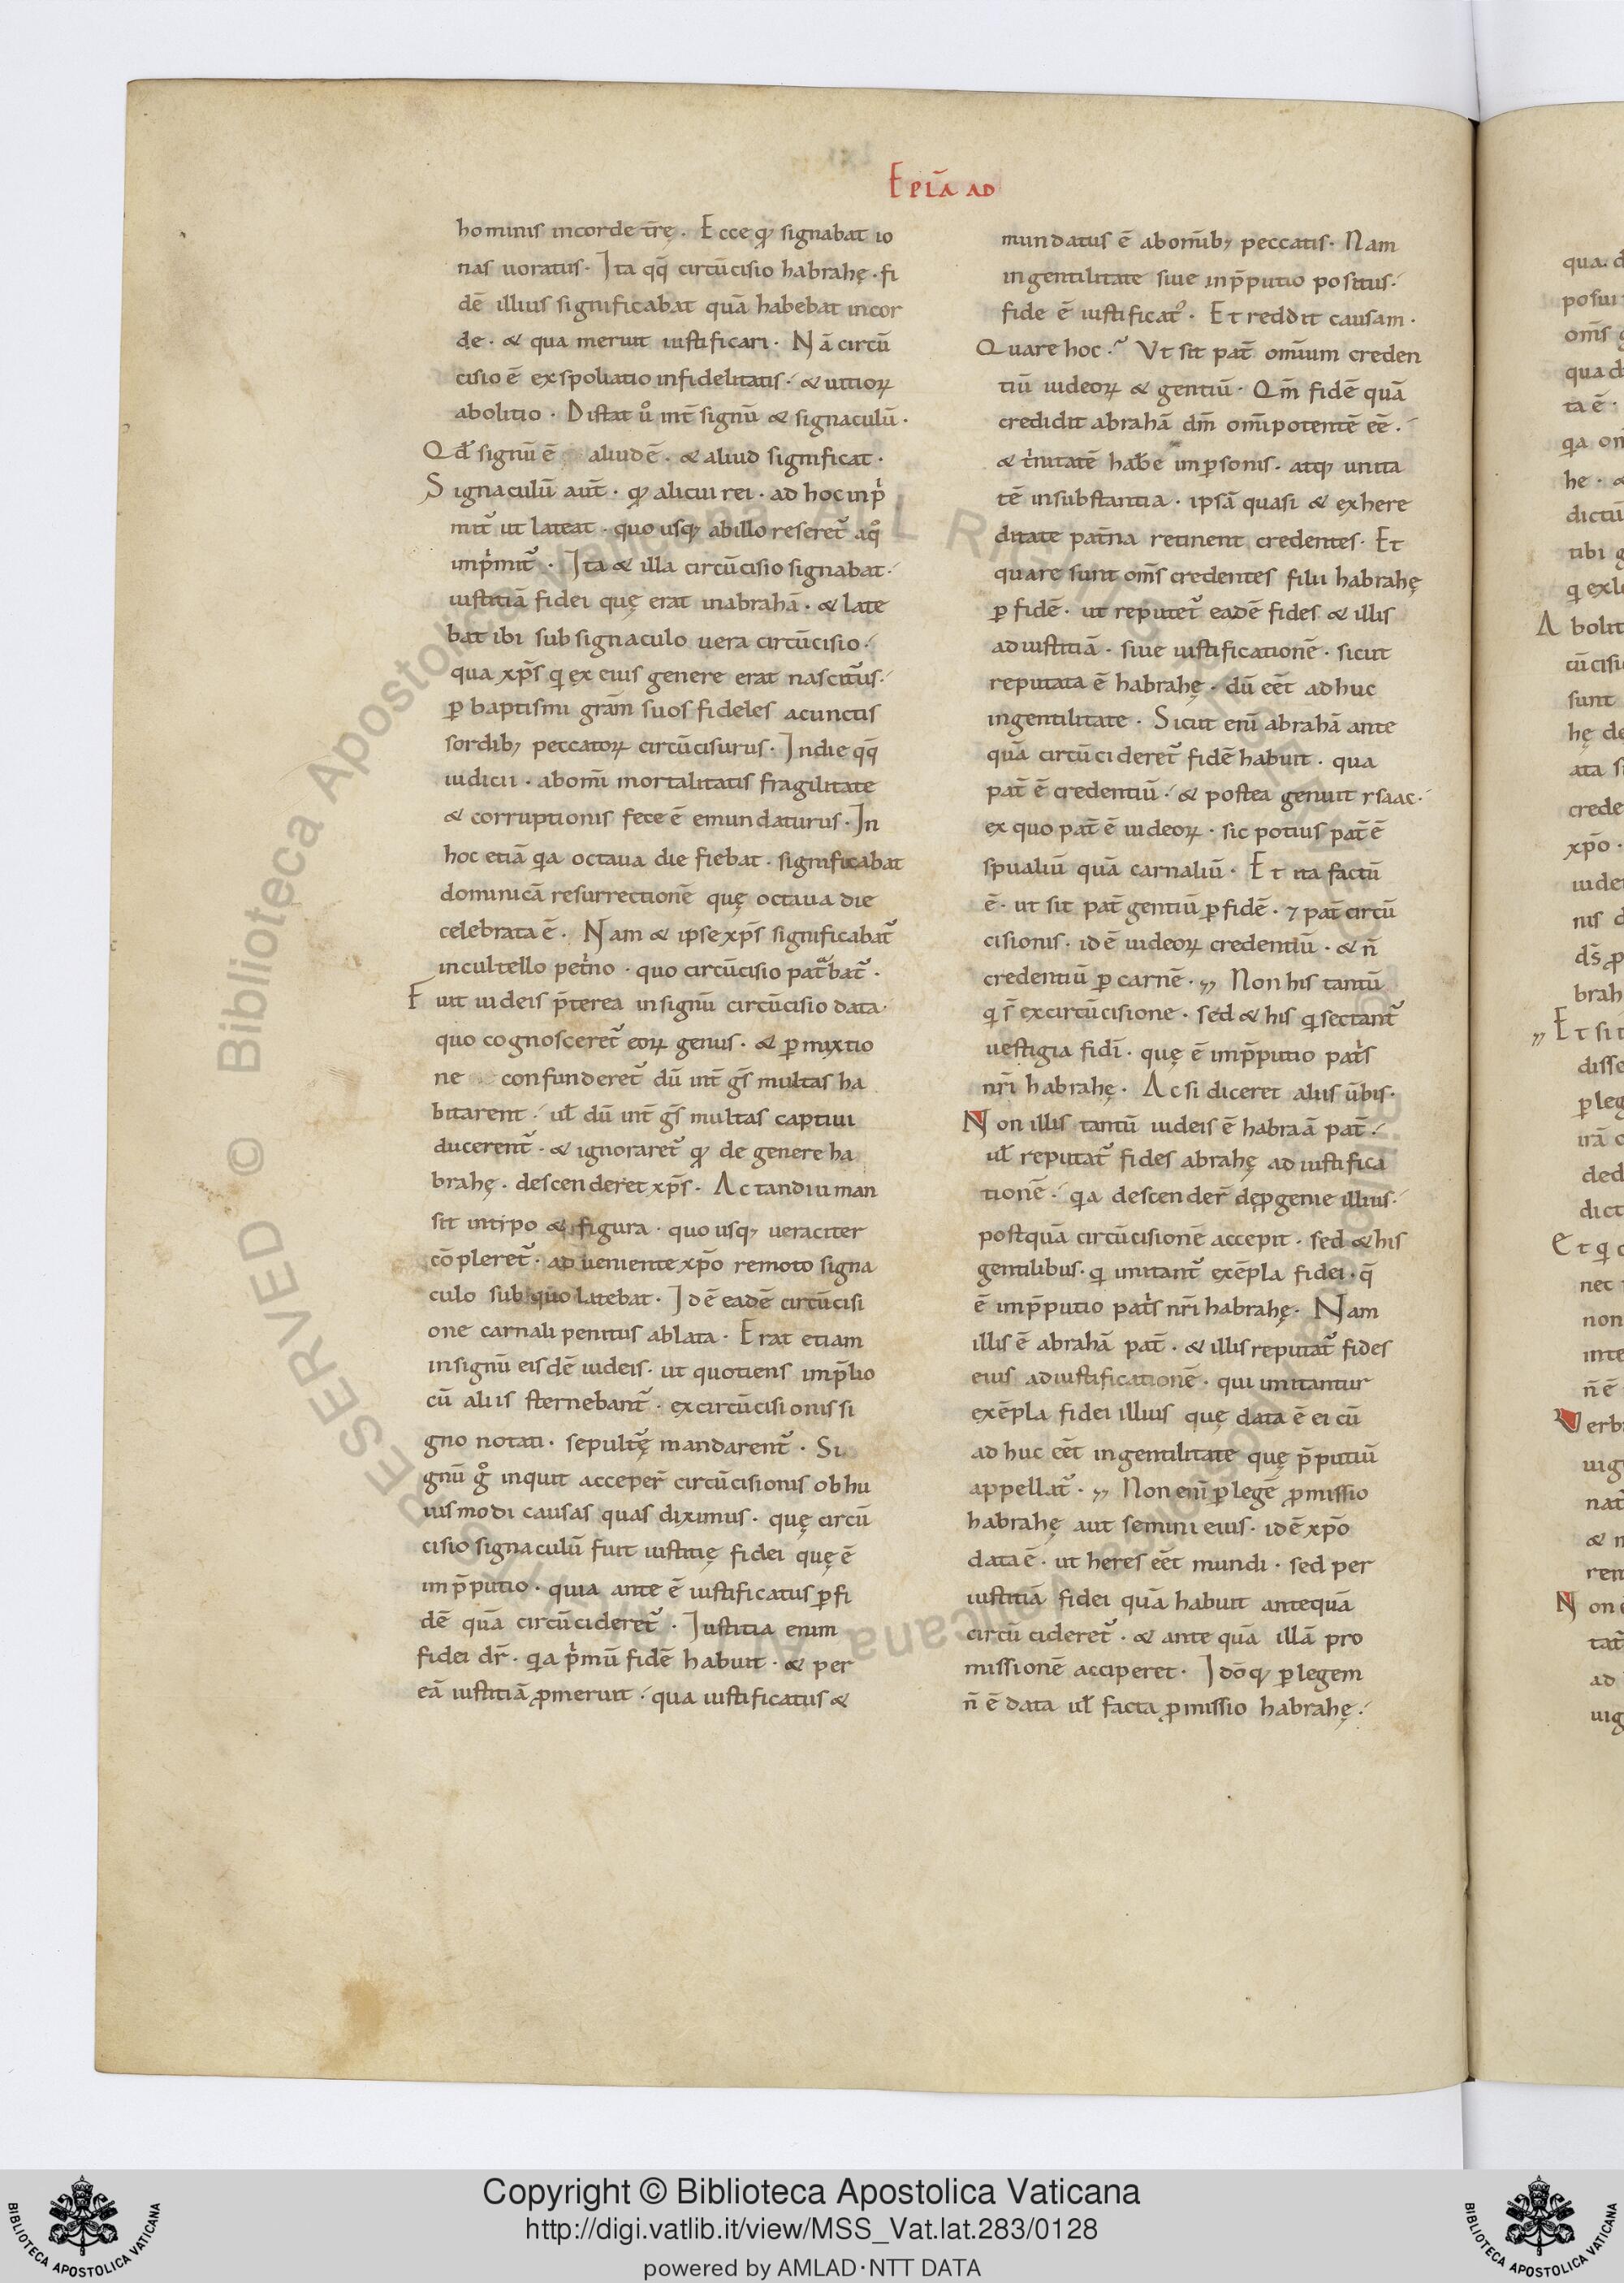 Epła ad
hominis incorde tr̄ę. Ecce qđ signabat io
nas uoratus. Ita qq̄ circūcisio habrahę. fi
dē illius significabat quā habebat incor
de. & qua meruit iustificari. Nā circū
cisio ē exspoliatio infidelitatis. & uitioꝝ
abolitio. Distat ů int̄ signū & signaculū.
Qđ signū ē aliud ē. & aliud significat.
Signaculū aut̄. qđ alicui rei. ad hoc inp̍
mit᷑ ut lateat. quo usq; abillo reseret᷑ aq̊
imp̍mit᷑. Ita & illa circūcisio signabat.
iustitiā fidei quę erat inabrahā. & late
bat ibi sub signaculo uera circūcisio.
qua xp̄s q̍ ex eius genere erat nascit᷑us.
ꝑ baptismi gr̄am suos fideles acunctis
sordib; peccatoꝝ circūcisurus. Indie qq̄
iudicii. abom̄i mortalitatis fragilitate
& corruptionis fece ē emundaturus. In
hoc etiā q̍a octaua die fiebat. significabat
dominicā resurrectionē quę octaua die
celebrata ē. Nam & ipse xp̄s significabat᷑
incultello pet̍no. quo circūcisio pat᷑bat᷑.
Fuit iudeis p̄terea insignū circūcisio data.
quo cognosceret᷑ eoꝝ genus. & ꝑmixtio
ne confunderet᷑ dū int̄ gs̄ multas ha
bitarent. ul̄ dū int̄ gs̄ multas captiui
ducerent᷑. & ignoraret᷑ qđ de genere ha
brahę. descenderet xp̄s. Ac tandiu man
sit intipo & figura. quo usq; ueraciter
cōpleret᷑. adueniente xp̄o remoto signa
culo sub quo latebat. Idē eadē circūcisi
one carnali penitus ablata. Erat etiam
insignū eisdē iudeis. ut quotiens imp̄lio
cū aliis sternebant᷑. excircūcisionis si
gno notati. sepultę̄ mandarent᷑. Si
gnū g̊ inquit acceper̄ circūcisionis ob hu
iusmodi causas quas diximus. quę circū
cisio signaculū fuit iustitię fidei quę ē
imp̄putio. quia ante ē iustificatus ꝑ fi
dē quā circūcideret᷑. Iustitia enim
fidei dr̄. q̍a p̍mū fidē habuit. & per
eā iustitiā ꝓmeruit. qua iustificatus &
mundatus ē abomīb; peccatis. Nam
ingentilitate siue inp̄putio positus.
fide ē iustificat᷒. Et reddit causam.
Quare hoc. Vt sit pat̄ omīum creden
tiū iudeoꝝ & gentiū. Qm̄ fidē quā
credidit abrahā dm̄ om̄ipotentē eē.
& t̍nitatē hab̄e inꝑsonis. atq; unita
tē insubstantia. ipsā quasi & exhere
ditate pat̄na retinent credentes. Et
quare sunt om̄s credentes filii habrahę
ꝑ fidē. ut reputet᷑ eadē fides & illis
adiustitiā. siue iustificationē. sicut
reputata ē habrahę. dū eēt adhuc
ingentilitate. Sicut eni̅ abrahā ante
quā circūcideret᷑ fidē habuit. qua
pat̄ ē credentiū. & postea genuit ysaac.
ex quo pat̄ ē iudeoꝝ. sic potius pat̄ ē
spualiū quā carnaliū. Et ita factū
ē. ut sit pat̄ gentiū ꝑ fidē. ⁊ pat̄ circū
cisionis. idē iudeoꝝ credentiū. & n̄
credentiū ꝑ carnē. „ Non his tantū
q̍ s̄ excircūcisione. sed & his q̍ sectant᷑
uestigia fidī. quę ē imp̄putio pat̍s
nr̄i habrahę. Ac si diceret aliis ūbis.
Non illis tantū iudeis ē habraā pat̄.
ul̄ reputat᷑ fides abrahę ad iustifica
tionē. q̍a descender̄ deꝓgenie illius.
postquā circūcisionē accepit. sed & his
gentilibus. q̍ imitant᷑ exēpla fidei. q̄
ē imp̄putio pat̍s nr̄i habrahę. Nam
illis ē abrahā pat̄. & illis reputat᷑ fides
eius adiustificationē. qui imitantur
exēpla fidei illius quę data ē ei cū
ad huc eēt ingentilitate quę p̄putiū
appellat᷑. „ Non eni̅ ꝑ legē ꝓmissio
habrahę aut semini eius. idē xp̄o
data ē. ut heres eēt mundi. sed per
iustitiā fidei quā habuit antequā
circūcideret᷑. & ante quā illā pro
missionē acciperet. Idōq; ꝑ legem
n̄ ē data ul̄ facta ꝓmissio habrahę.
Copyright © Biblioteca Apostolica Vaticana
http://digi.vatlib.it/view/MSS_Vat.lat.283/0128
powered by AMLAD·NTT DATA